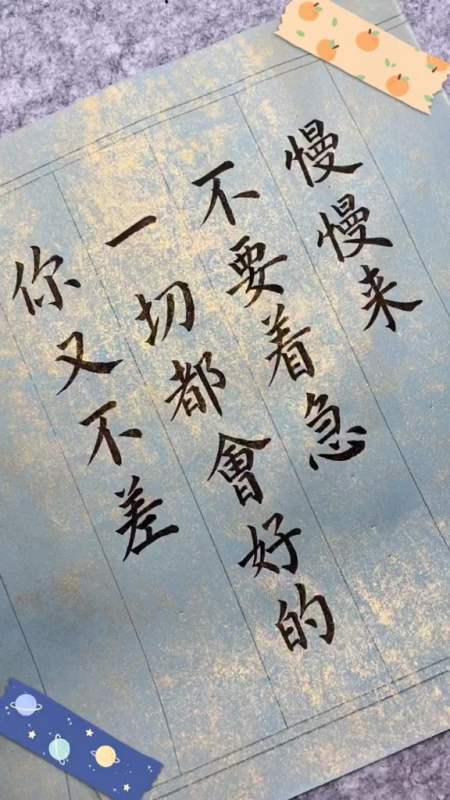 慢慢来
不要着急
一切都會好的
你又不差